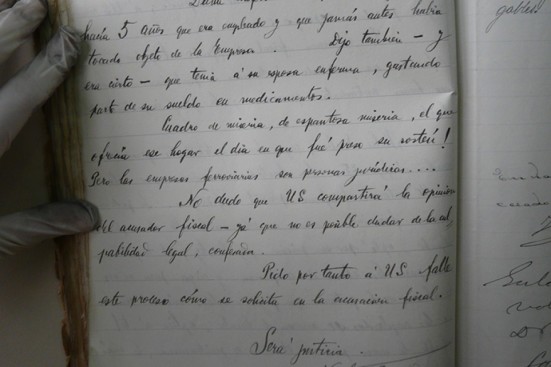 hacía 5 años que era empleado y que jamás antes había
tocado objeto de la Empresa. Dijo también – y
era cierto – que tenía á su esposa enferma, gastando
part de su sueldo en medicamentos.
Cuadro de miseria, de espantosa miseria, el que
ofrecía ese hogar el día en que fué preso su sostén!
Pero las empresas ferroviarias son personas jurídicas....
No dudo que US compartirá la opinión
del acusador fiscal – yá que no es posible dudar de la cul
pabilidad legal, confesada.
Pido por tanto á US falle
este proceso cómo se solicita en la acusación fiscal.
Será justicia.